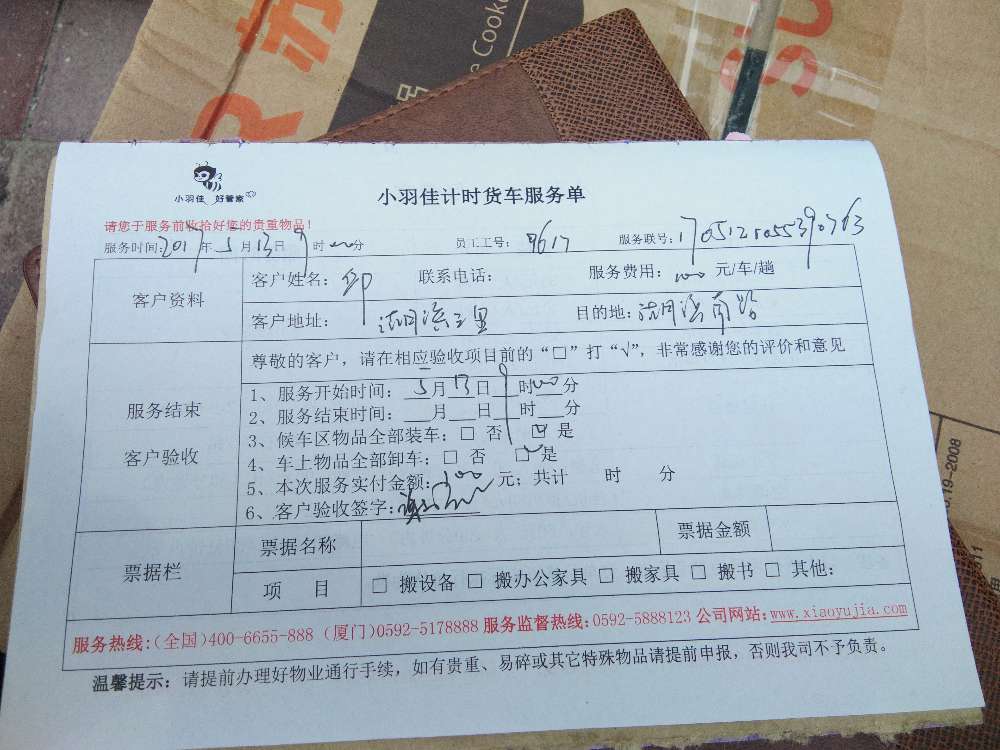 苏
Cooka
SU
R
小羽佳 好管家
小羽佳计时货车服务单
请您于服务前收拾好您的贵重物品！
服务时间:2017年5月13日9时00分 员工工号: 9617 服务联号:
客户资料
客户姓名: 联系电话: 服务费用: 100 元/车/趟
客户地址: 目的地:
服务结束
客户验收
尊敬的客户，请在相应验收项目前的“□”打“√”，非常感谢您的评价和意见
1、服务开始时间: 5月13日9时00分
2、服务结束时间: 月 日 时 分
3、候车区物品全部装车: □ 否 ☑ 是
4、车上物品全部卸车: □ 否 ☑ 是
5、本次服务实付金额: 100 元; 共计 时 分
6、客户验收签字:
票据栏
票据名称 票据金额
项 目 □ 搬设备 □ 搬办公家具 □ 搬家具 □ 搬书 □ 其他:
服务热线:(全国)400-6655-888 (厦门)0592-5178888 服务监督热线:0592-5888123 公司网站:www.xiaoyujia.com
温馨提示: 请提前办理好物业通行手续，如有贵重、易碎或其它特殊物品请提前申报，否则我司不予负责。
19-2008